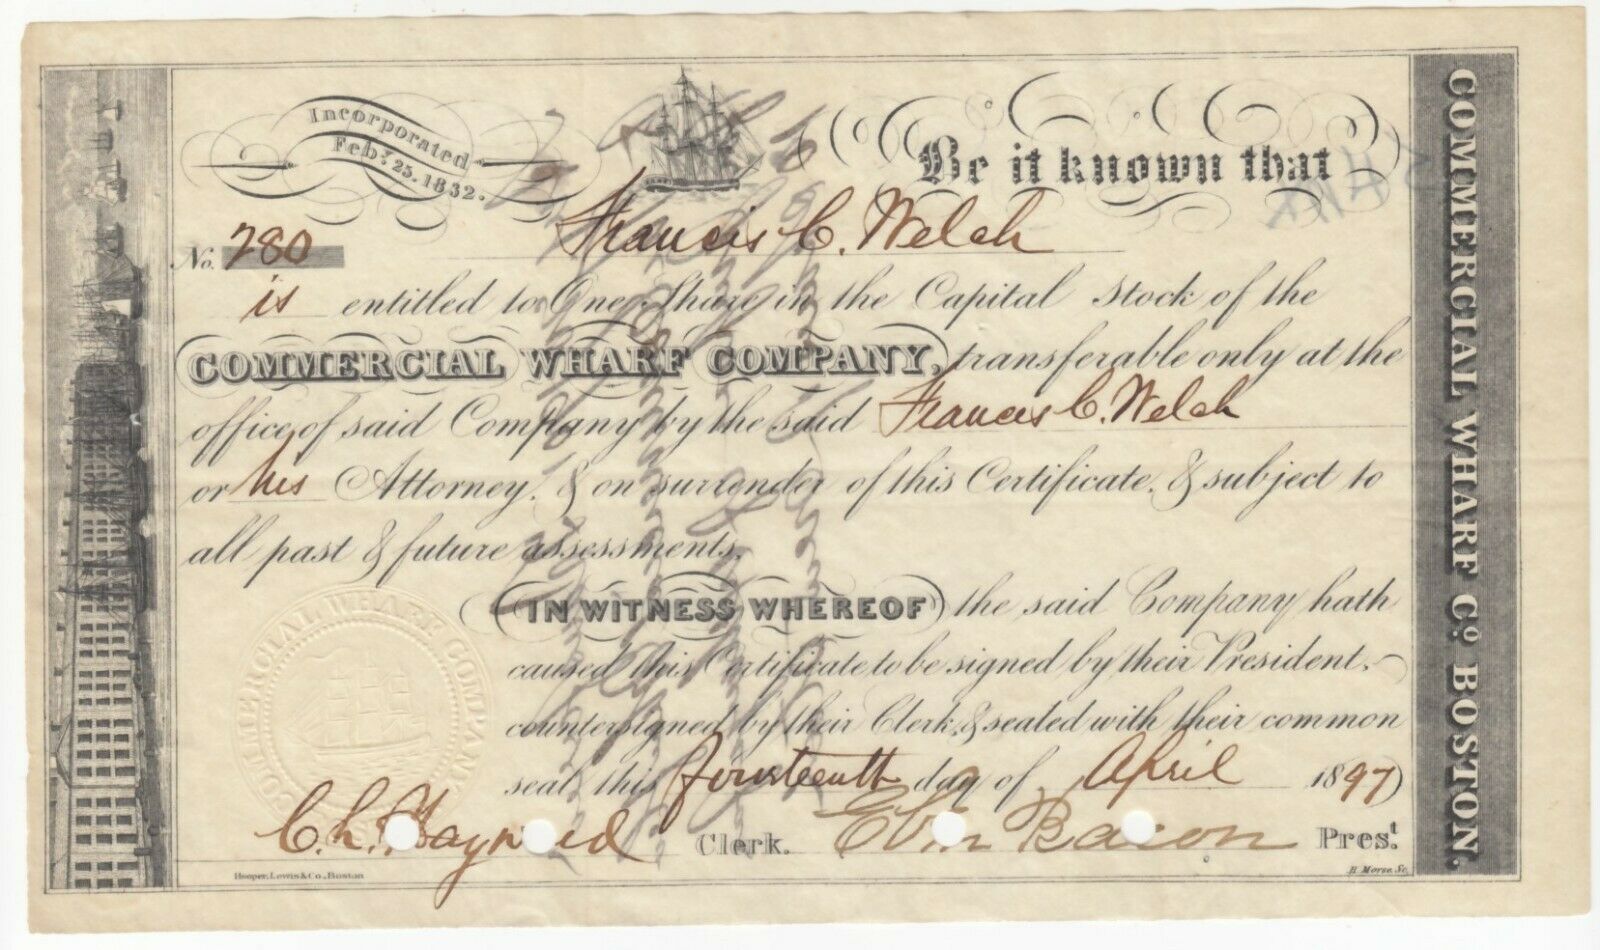 Incorporated
Feby. 25. 1832.
Be it known that
No. 280 Francis C. Welch
is entitled to One Share in the Capital Stock of the
COMMERCIAL WHARF COMPANY, transferable only at the
office of said Company by the said Francis C. Welch
or his Attorney, & on surrender of this Certificate, & subject to
all past & future assessments.
IN WITNESS WHEREOF the said Company hath
caused this Certificate to be signed by their President,
countersigned by their Clerk, & sealed with their common
seal, this fourteenth day of April 1897
C. L. Hayward Clerk. Eben Bacon Prest.
Hooper, Lewis & Co., Boston
H. Morse, Sc.
COMMERCIAL WHARF Co. BOSTON.
COMMERCIAL WHARF COMPANY